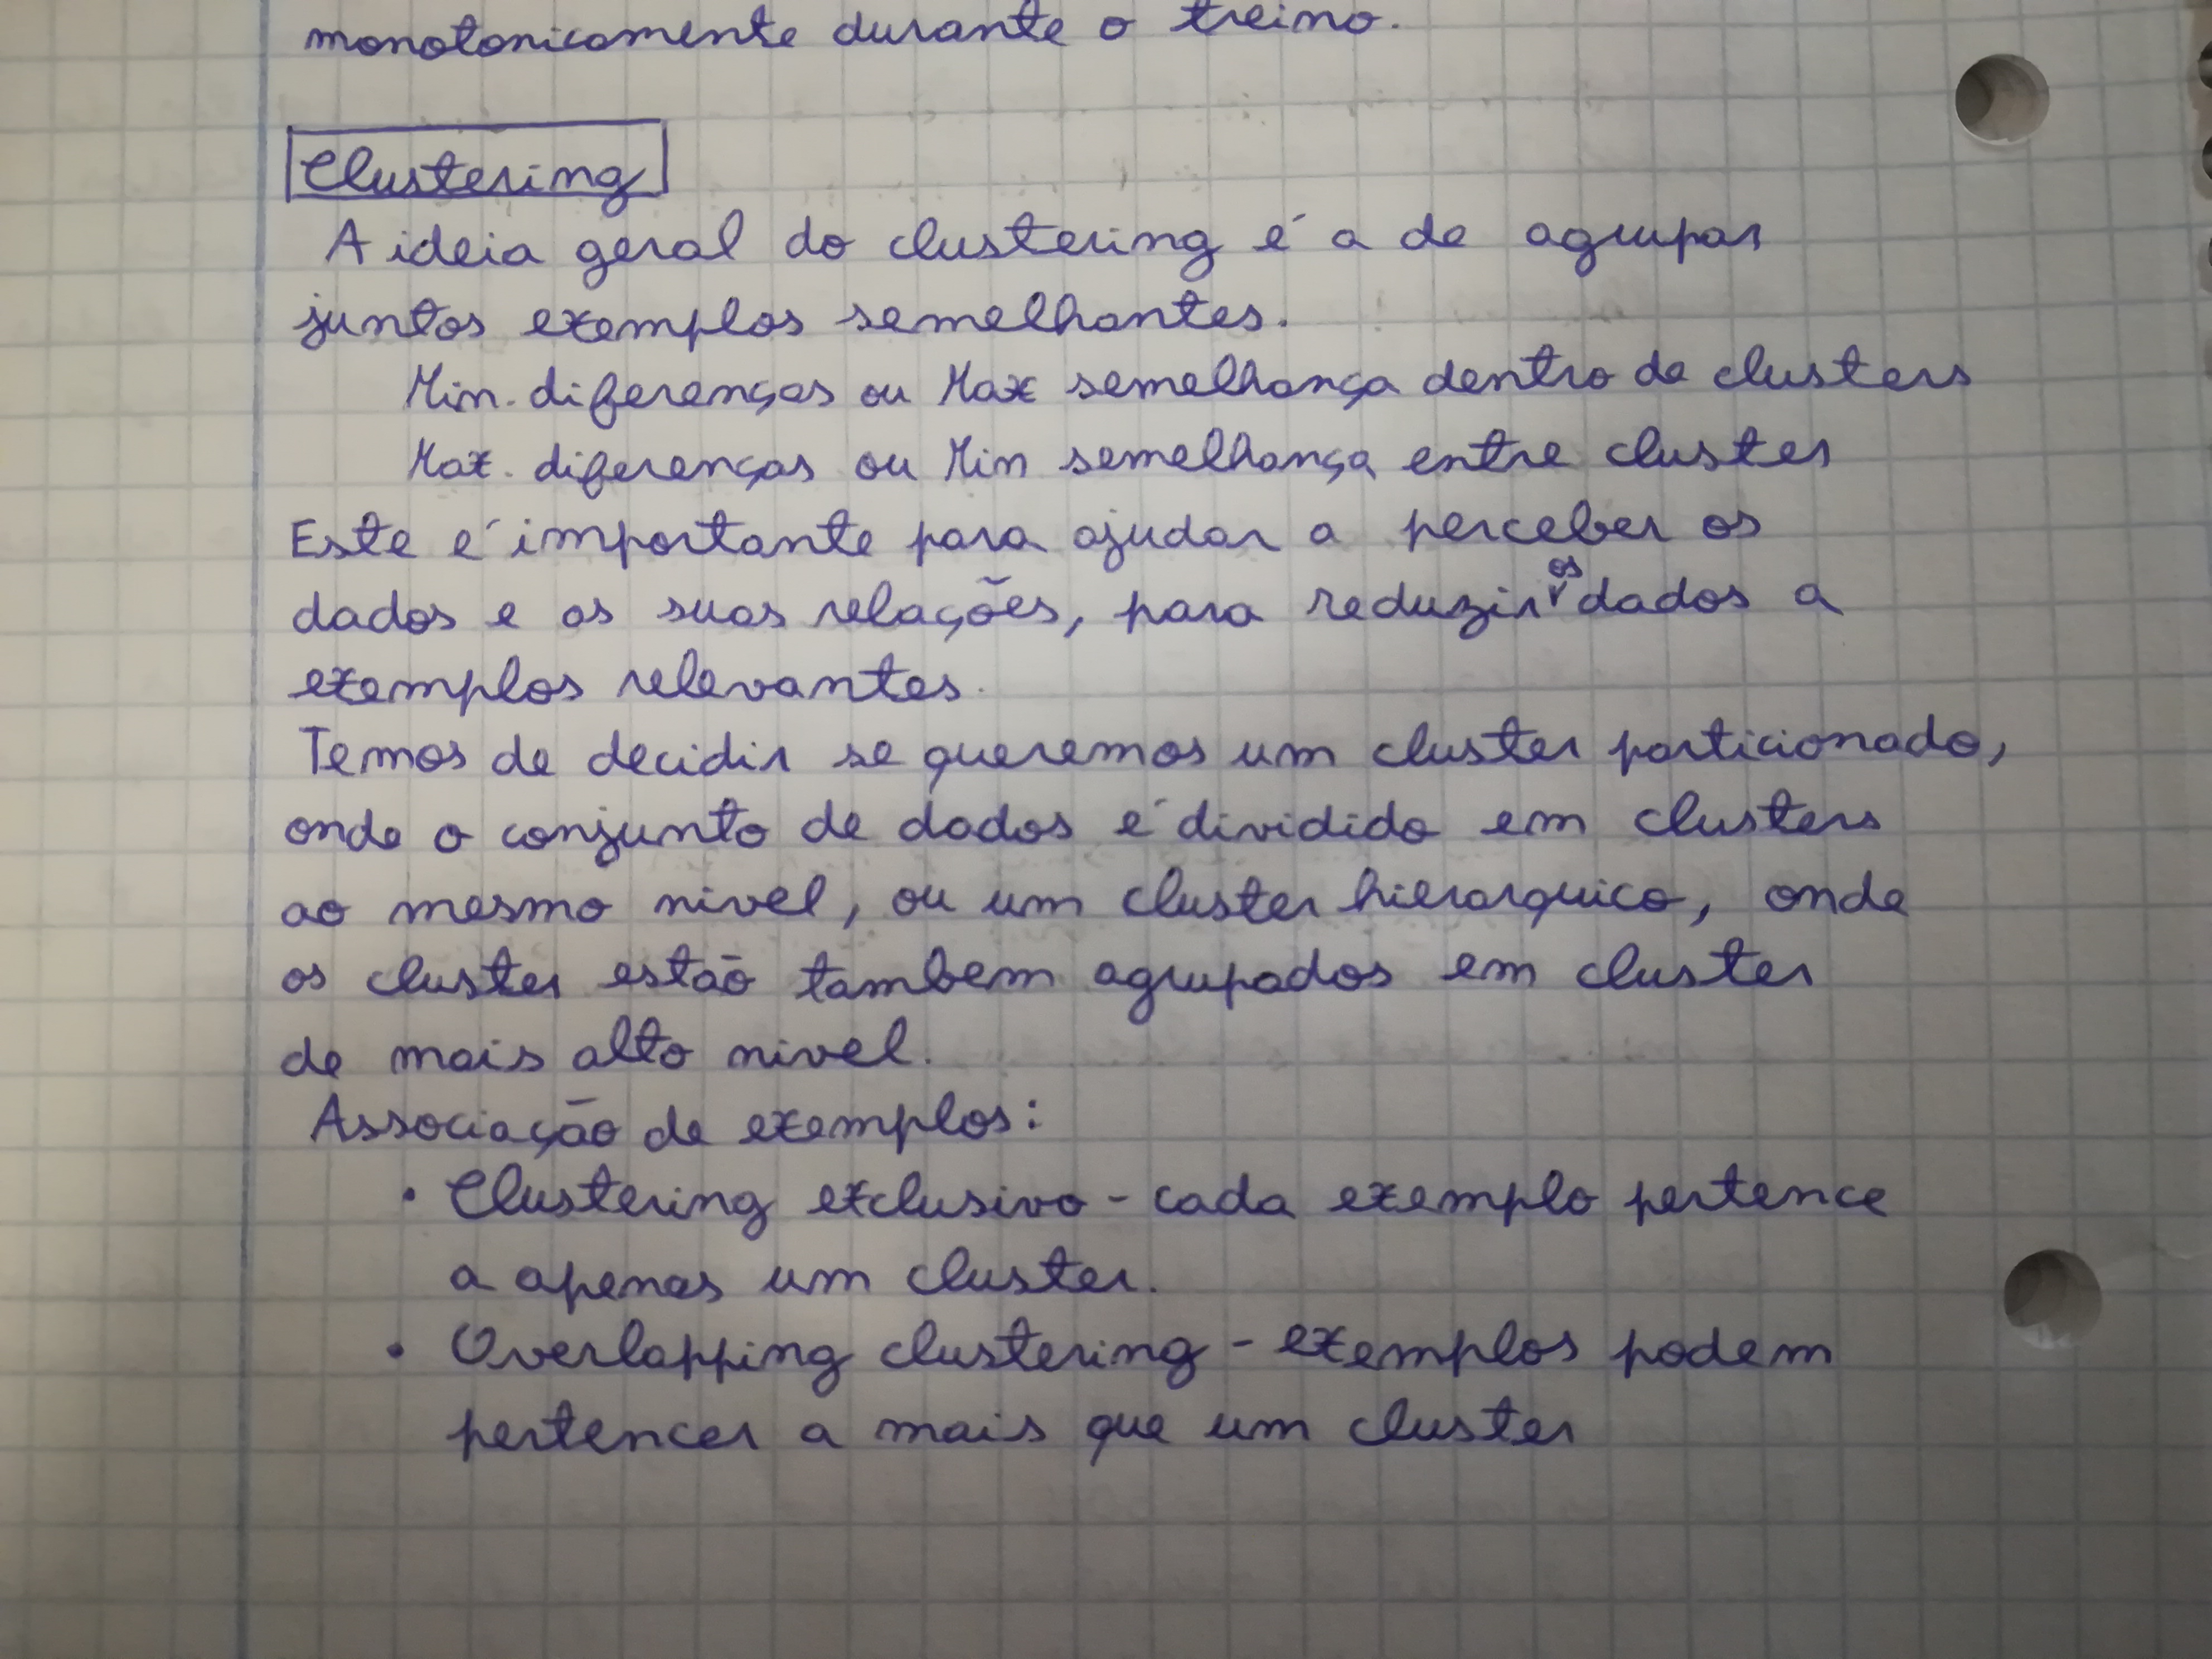 monotonicamente durante o treino.
Clustering
A ideia geral do clustering é a de agrupar
juntos exemplos semelhantes.
Min. diferenças ou Max semelhança dentro de clusters
Max. diferenças ou Min semelhança entre cluster
Este é importante para ajudar a perceber os
dados e as suas relações, para reduzir os dados a
exemplos relevantes.
Temos de decidir se queremos um cluster particionado,
onde o conjunto de dados é dividido em clusters
ao mesmo nivel, ou um cluster hierarquico, onde
os cluster estão tambem agrupados em cluster
de mais alto nivel.
Associação de exemplos:
• Clustering exclusivo - cada exemplo pertence
a apenas um cluster.
• Overlapping clustering - exemplos podem
pertencer a mais que um cluster